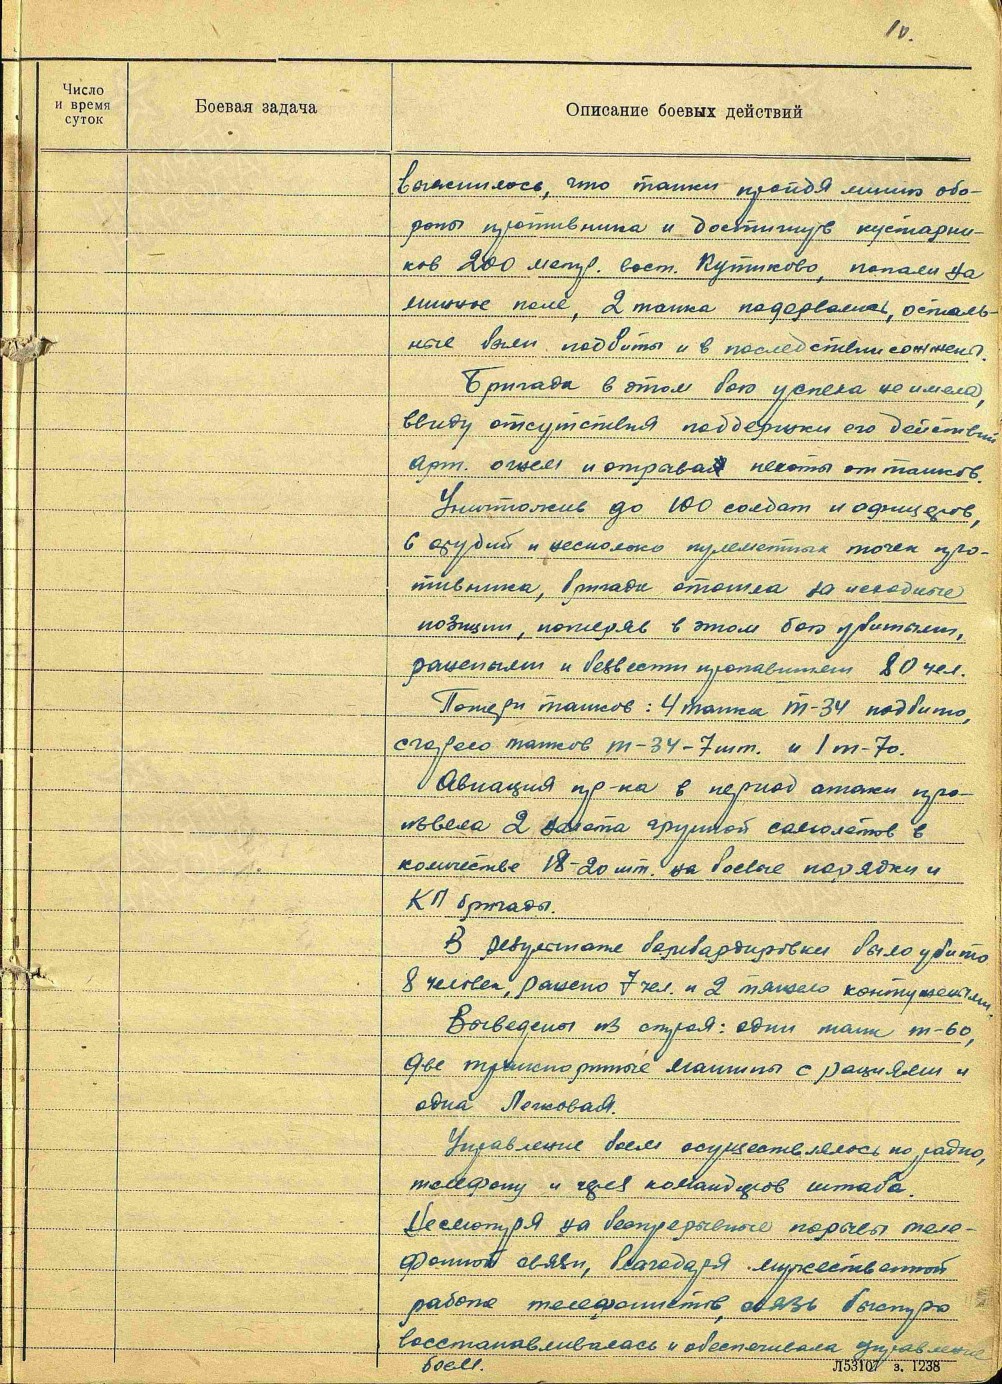 10.
Число
и время
суток
Боевая задача
Описание боевых действий
выяснилось, что танки пройдя линию обо-
роны противника и достигнув кустарни-
ков 200 метр. вост. Кутьково, попали на
минное поле, 2 танка подорвались, осталь-
ные были подбиты и в последствии сожжены.
Бригада в этом бою успеха не имела,
ввиду отсутствия поддержки его действий
арт. огнем и отрыва пехоты от танков.
Уничтожив до 100 солдат и офицеров,
6 орудий и несколько пулеметных точек про-
тивника, бригада отошла на исходные
позиции, потеряв в этом бою убитыми,
ранеными и безвести пропавшими 80 чел.
Потери танков: 4 танка Т-34 подбито,
сгорело танков т-34-7шт. и 1 т-70.
Авиация пр-ка в период атаки про-
извела 2 налета группой самолетов в
количестве 18-20 шт. на боевые порядки и
КП бригады.
В результате бомбардировки было убито
8 человек, ранено 7 чел. и 2 тяжело контужеными.
Выведены из строя: один танк т-60,
две транспортные машины с рациями и
одна легковая.
Управление боем осуществлялось по радио,
телефону и через командиров штаба.
Несмотря на беспрерывные порывы теле-
фонной связи, благодаря мужественной
работе телефонистов, связь быстро
восстанавливалась и обеспечивала управление
боем.
Л53107 з. 1238